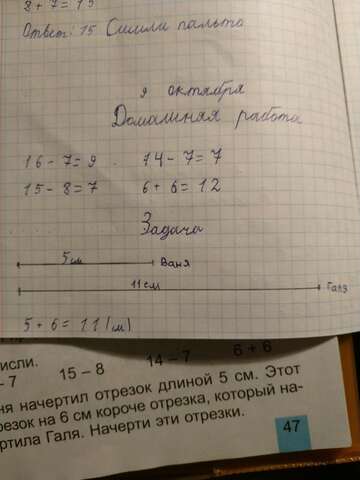 8 + 7 = 15
Ответ: 15 Сшили пальто
9 октября
Домашняя работа
16 - 7 = 9 14 - 7 = 7
15 - 8 = 7 6 + 6 = 12
Задача
5 см Ваня
11 см Галя
5 + 6 = 11 (м)
исли.
- 7 15 - 8 14 - 7 6 + 6
ня начертил отрезок длиной 5 см. Этот
резок на 6 см короче отрезка, который на-
ртила Галя. Начерти эти отрезки.
47